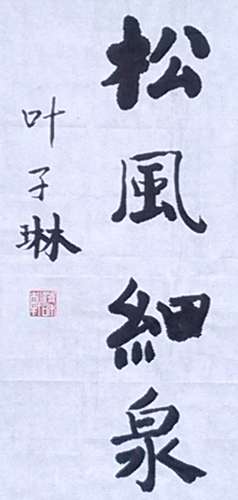 松風細泉
叶子琳